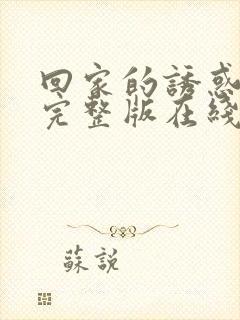 回家的誘惑
完整版在綫
蘇說